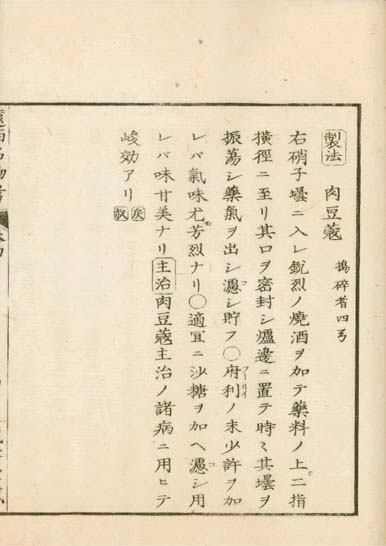 製法 肉豆蔻 搗碎者四ヲ
右硝子壜ニ入レ銳烈ノ燒酒ヲ加テ藥料ノ上ニ二指
橫徑ニ至リ其口ヲ密封シ爐邊ニ置テ時々其壜ヲ
振蕩シ藥氣ヲ出シ濾シ貯フ○府利ノ末少許ヲ加
レバ氣味尤芳烈ナリ○適宜ニ沙糖ヲ加ヘ濾シ用
レバ味甘美ナリ 主治 肉豆蔻主治ノ諸病ニ用ヒテ
峻効アリ